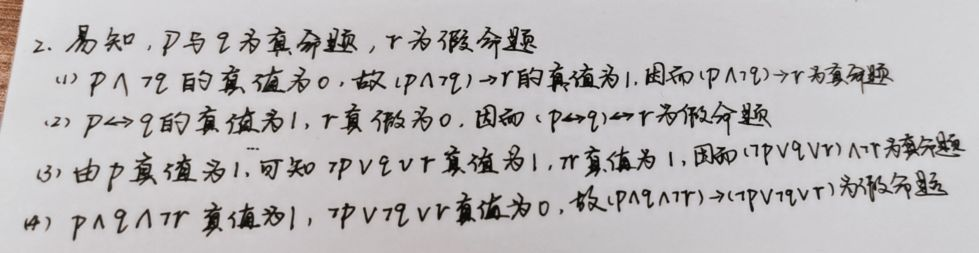 2. 易知, p与q为真命题, r为假命题
(1) p∧¬q 的真值为0, 故(p∧¬q)→r的真值为1, 因而(p∧¬q)→r为真命题
(2) p↔q的真值为1, r真值为0, 因而(p↔q)↔r为假命题
(3) 由p真值为1, 可知 ¬p∨q∨r 真值为1, ¬r真值为1, 因而(¬p∨q∨r)∧¬r为真命题
(4) p∧q∧¬r 真值为1, ¬p∨¬q∨r真值为0, 故(p∧q∧¬r)→(¬p∨¬q∨r)为假命题